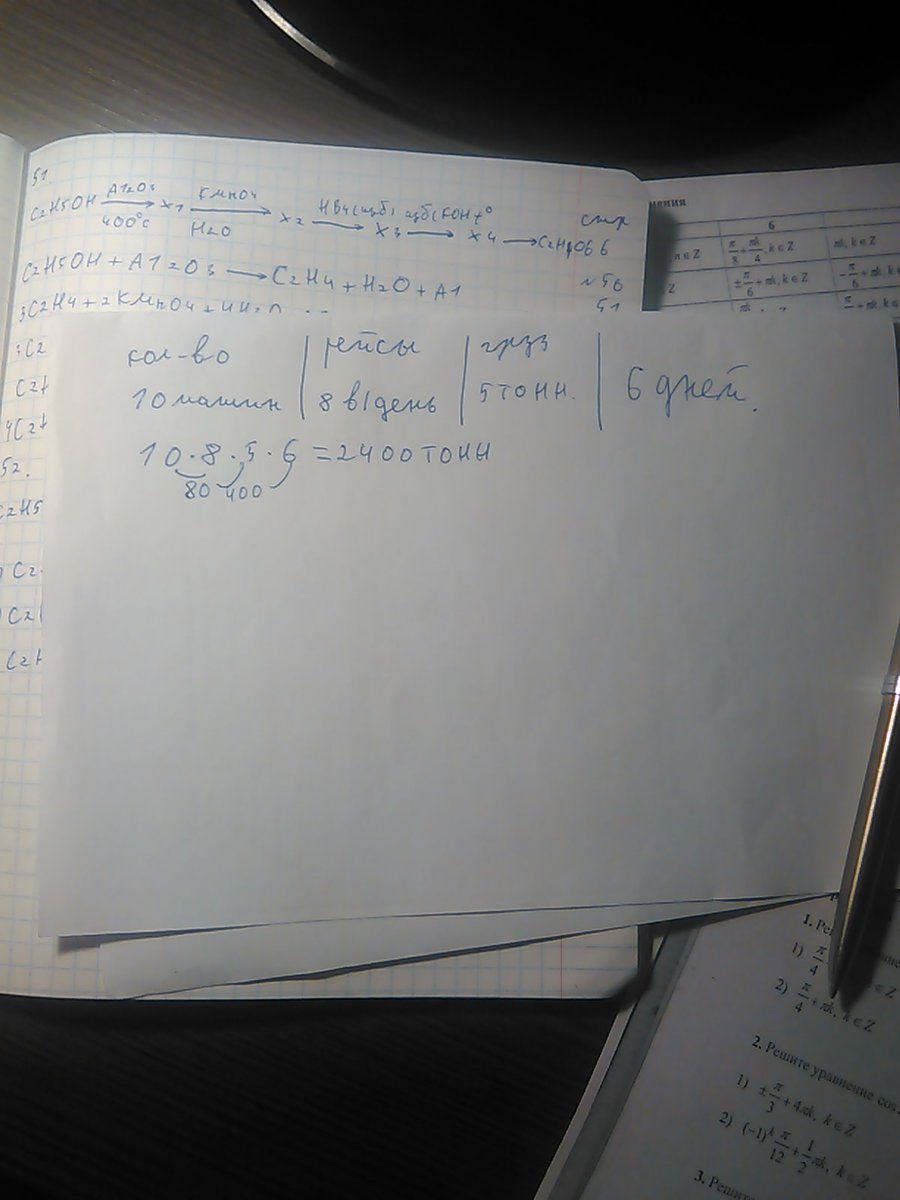 51.
C2H5OH Al2O3 → X1 KMnO4 → X2 HBr(изб) → X3 изб(KOH t° → X4 → стр
400°C H2O 66
C2H5OH + Al2O3 → C2H4 + H2O + Al №50
3C2H4 + 2KMnO4 + 4H2O 51
кол-во | рейсы | груз
10 машин | 8 в/день | 5 тонн. | 6 дней.
10 · 8 · 5 · 6 = 2400 тонн
80 400
52.
C2H5
C2
6
π/8 + πk/4, k ∈ Z πk, k ∈ Z
Z ± π/6 + πk, k ∈ Z
1)
2) π/4 + πk, k ∈ Z
2. Решите уравнение cos
1) ± π/3 + 4πk, k ∈ Z
2) (−1)^k π/12 + 1/2 πk, k ∈ Z
3. Решит